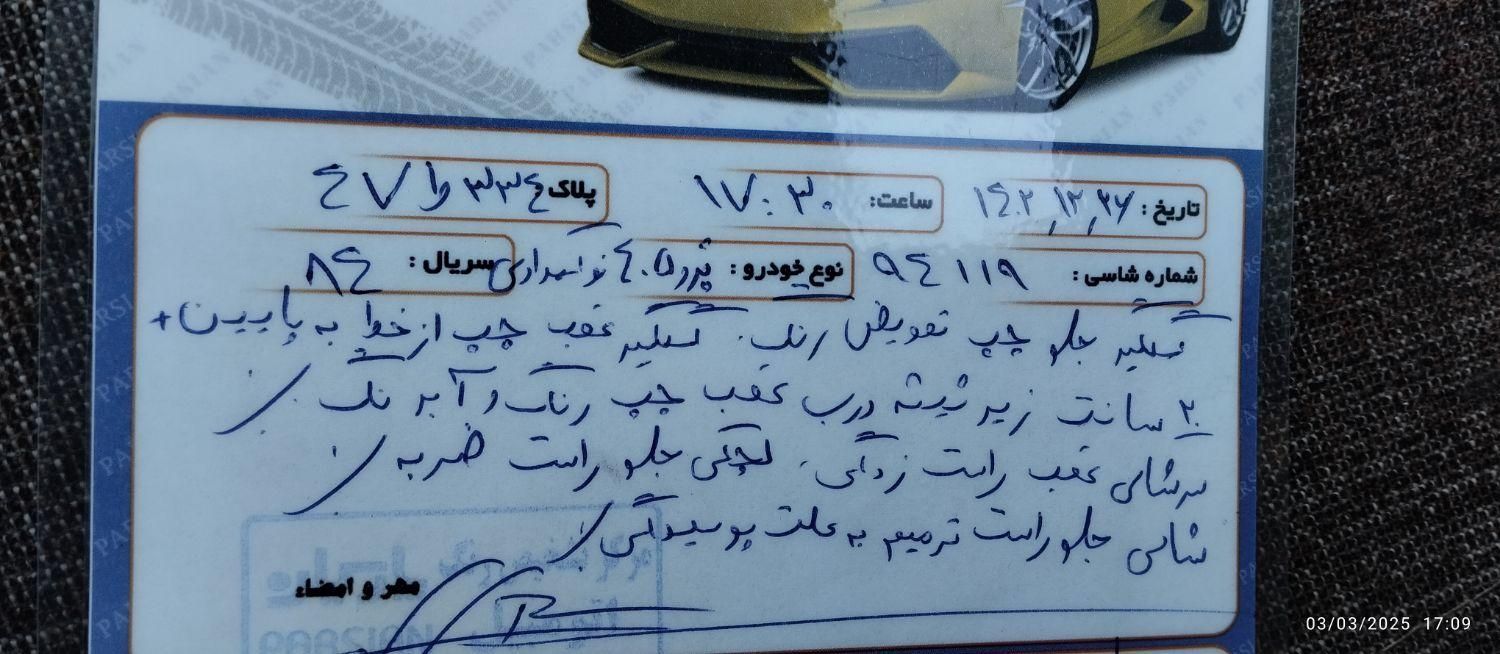 تاریخ : ۱۴۰۲,۱۲,۲۶ ساعت: ۱۷:۳۰ پلاک ۳۳۴ و ا ۴۷
شماره شاسی : ۹۴۱۱۹ نوع خودرو : پژو ۴۰۵ نوکمدادی سریال : ۸۴
گلگیر جلو چپ تعویض رنگ. گلگیر عقب چپ از خواب به پایین +
۲۰ سانت زیر شیشه درب عقب چپ رنگ و آبرنگ
سرشاسی عقب راست زدگی. لچکی جلو راست ضربه
شاسی جلو راست ترمیم به علت پوسیدگی
مهر و امضاء
PARSIAN
03/03/2025 17:09